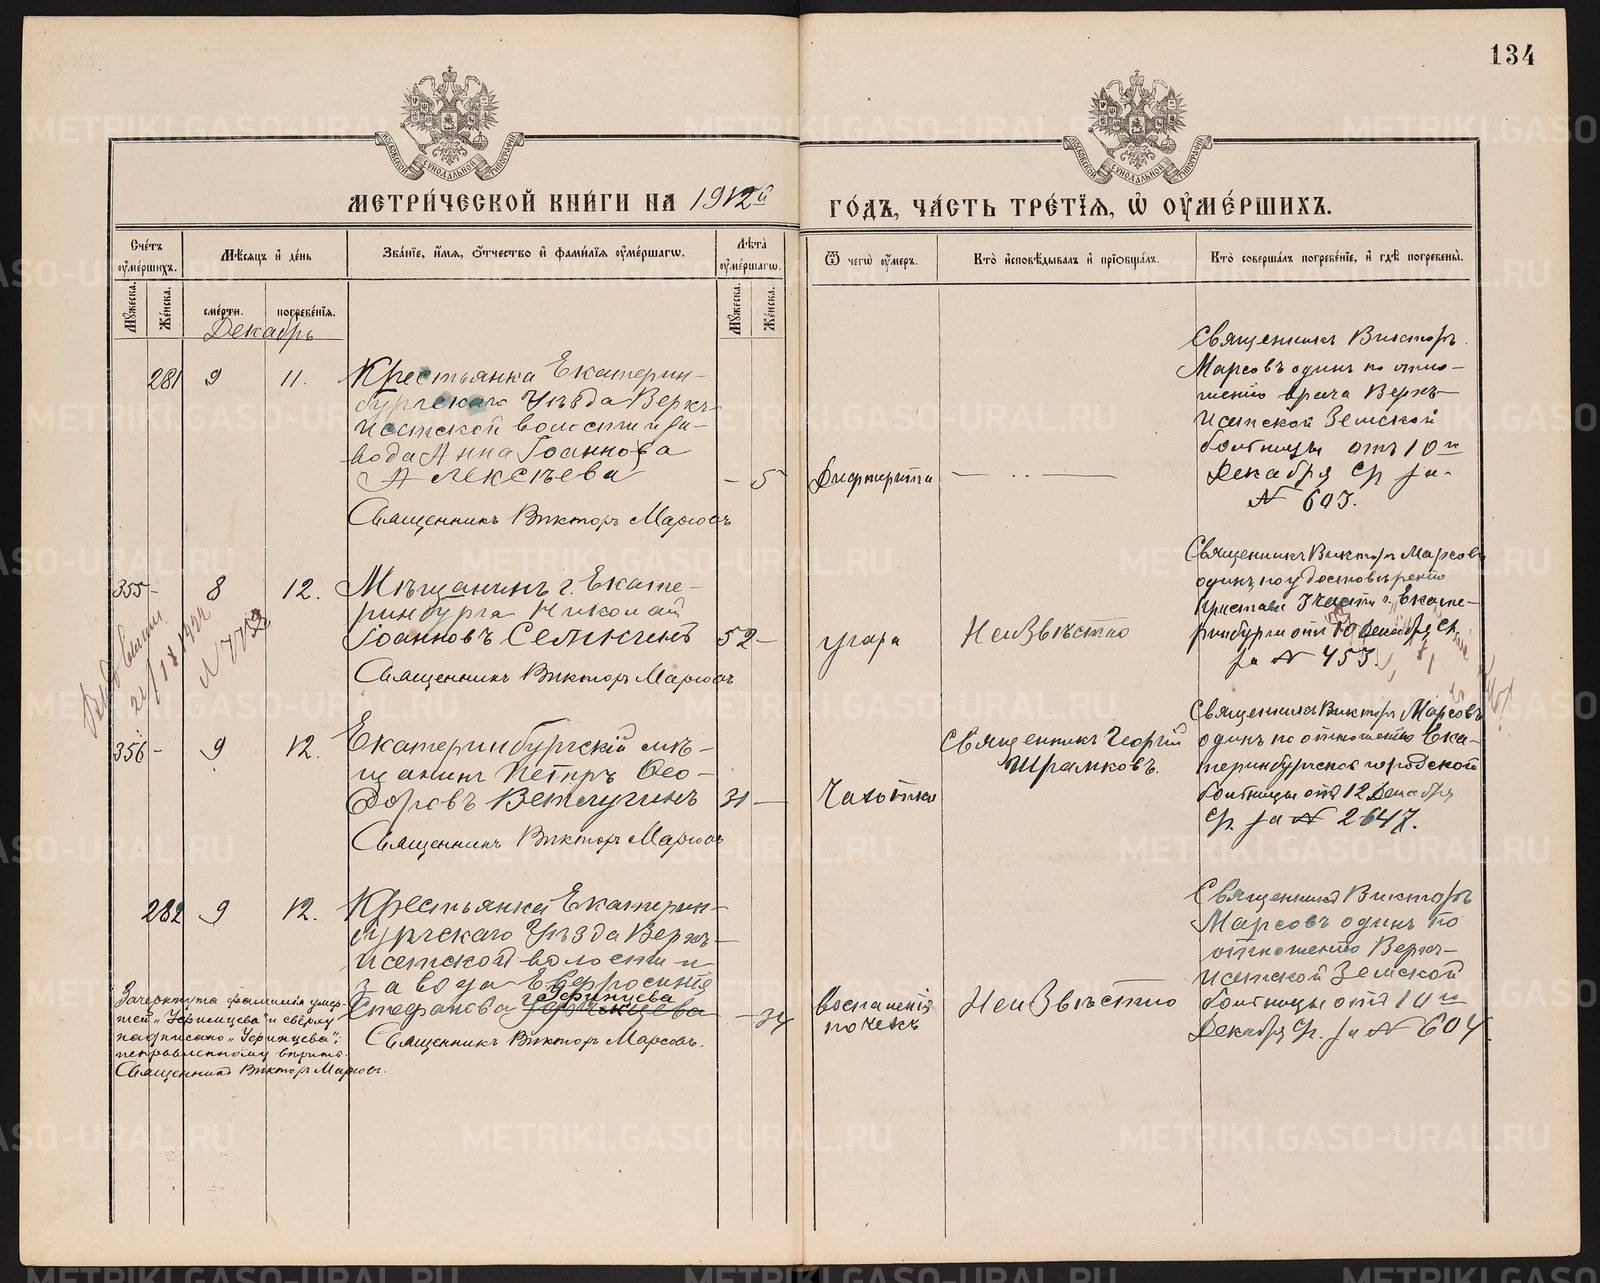 134
МЕТРИ́ЧЕСКОЙ КНИ́ГИ НА 1912й ГО́ДЪ, ЧА́СТЬ ТРЕ́ТІѦ, Ѿ ОУМЕ́РШИХЪ.
Сче́тъ оуме́ршихъ.
Мѣ́сяцъ и де́нь
Зва́ніе, и́мя, о́тчество и фами́лія оуме́ршагѡ.
Лѣта̀ оуме́ршагѡ.
Ѿ чегѡ̀ оу́меръ.
Кто̀ исповѣ́дывалъ и пріобща́лъ.
Кто̀ соверша́лъ погребе́ніе, и гдѣ̀ погребены̀.
Му́жеска.
Же́нска.
сме́рти.
погребе́нія.
Му́жеска.
Же́нска.
Декабрь
281 9 11.
Крестьянка Екатерин-
бургскаго Уѣзда Верхъ-
Исетской волости и за-
вода Анна Іоаннова
Алексѣева
- 5
Священникъ Викторъ Марсовъ
Дифтерита
Священникъ Викторъ
Марсовъ одинъ по отно-
шенію врача Верхъ-
Исетской Земской
больницы отъ 10го
Декабря ср за
№ 603.
355 - 8 12.
Мѣщанинъ г. Екате-
ринбурга Николай
Іоанновъ Семкинъ
52 -
Священникъ Викторъ Марсовъ
угара
Неизвѣстно
Священникъ Викторъ Марсовъ
одинъ, по удостовѣренію
Пристава 3 части г. Екате-
ринбурга отъ 10 Декабря ср.
за № 453.
356 - 9 12.
Екатеринбургскій мѣ-
щанинъ Петръ Ѳео-
доровъ Ветлугинъ
31 -
Священникъ Викторъ Марсовъ
Чахотки
Священникъ Георгій
Шрамковъ.
Священникъ Викторъ Марсовъ
одинъ по отношенію Ека-
теринбургской городской
больницы отъ 12 Декабря
ср. за № 2647.
282 9 12.
Крестьянка Екатерин-
бургскаго Уѣзда Верхъ-
Исетской волости и
завода Евфросинія
Стефанова Уфинцева
- 34
Священникъ Викторъ Марсовъ.
воспаленія
почекъ
Неизвѣстно
Священникъ Викторъ
Марсовъ одинъ по
отношенію Верхъ-
Исетской Земской
больницы отъ 10го
Декабря ср. за № 604.
Зачеркнута фамилія умер-
шей
и сверху
надписано
исправленному вѣрить.
Священникъ Викторъ Марсовъ.
METRIKI.GASO-URAL.RU